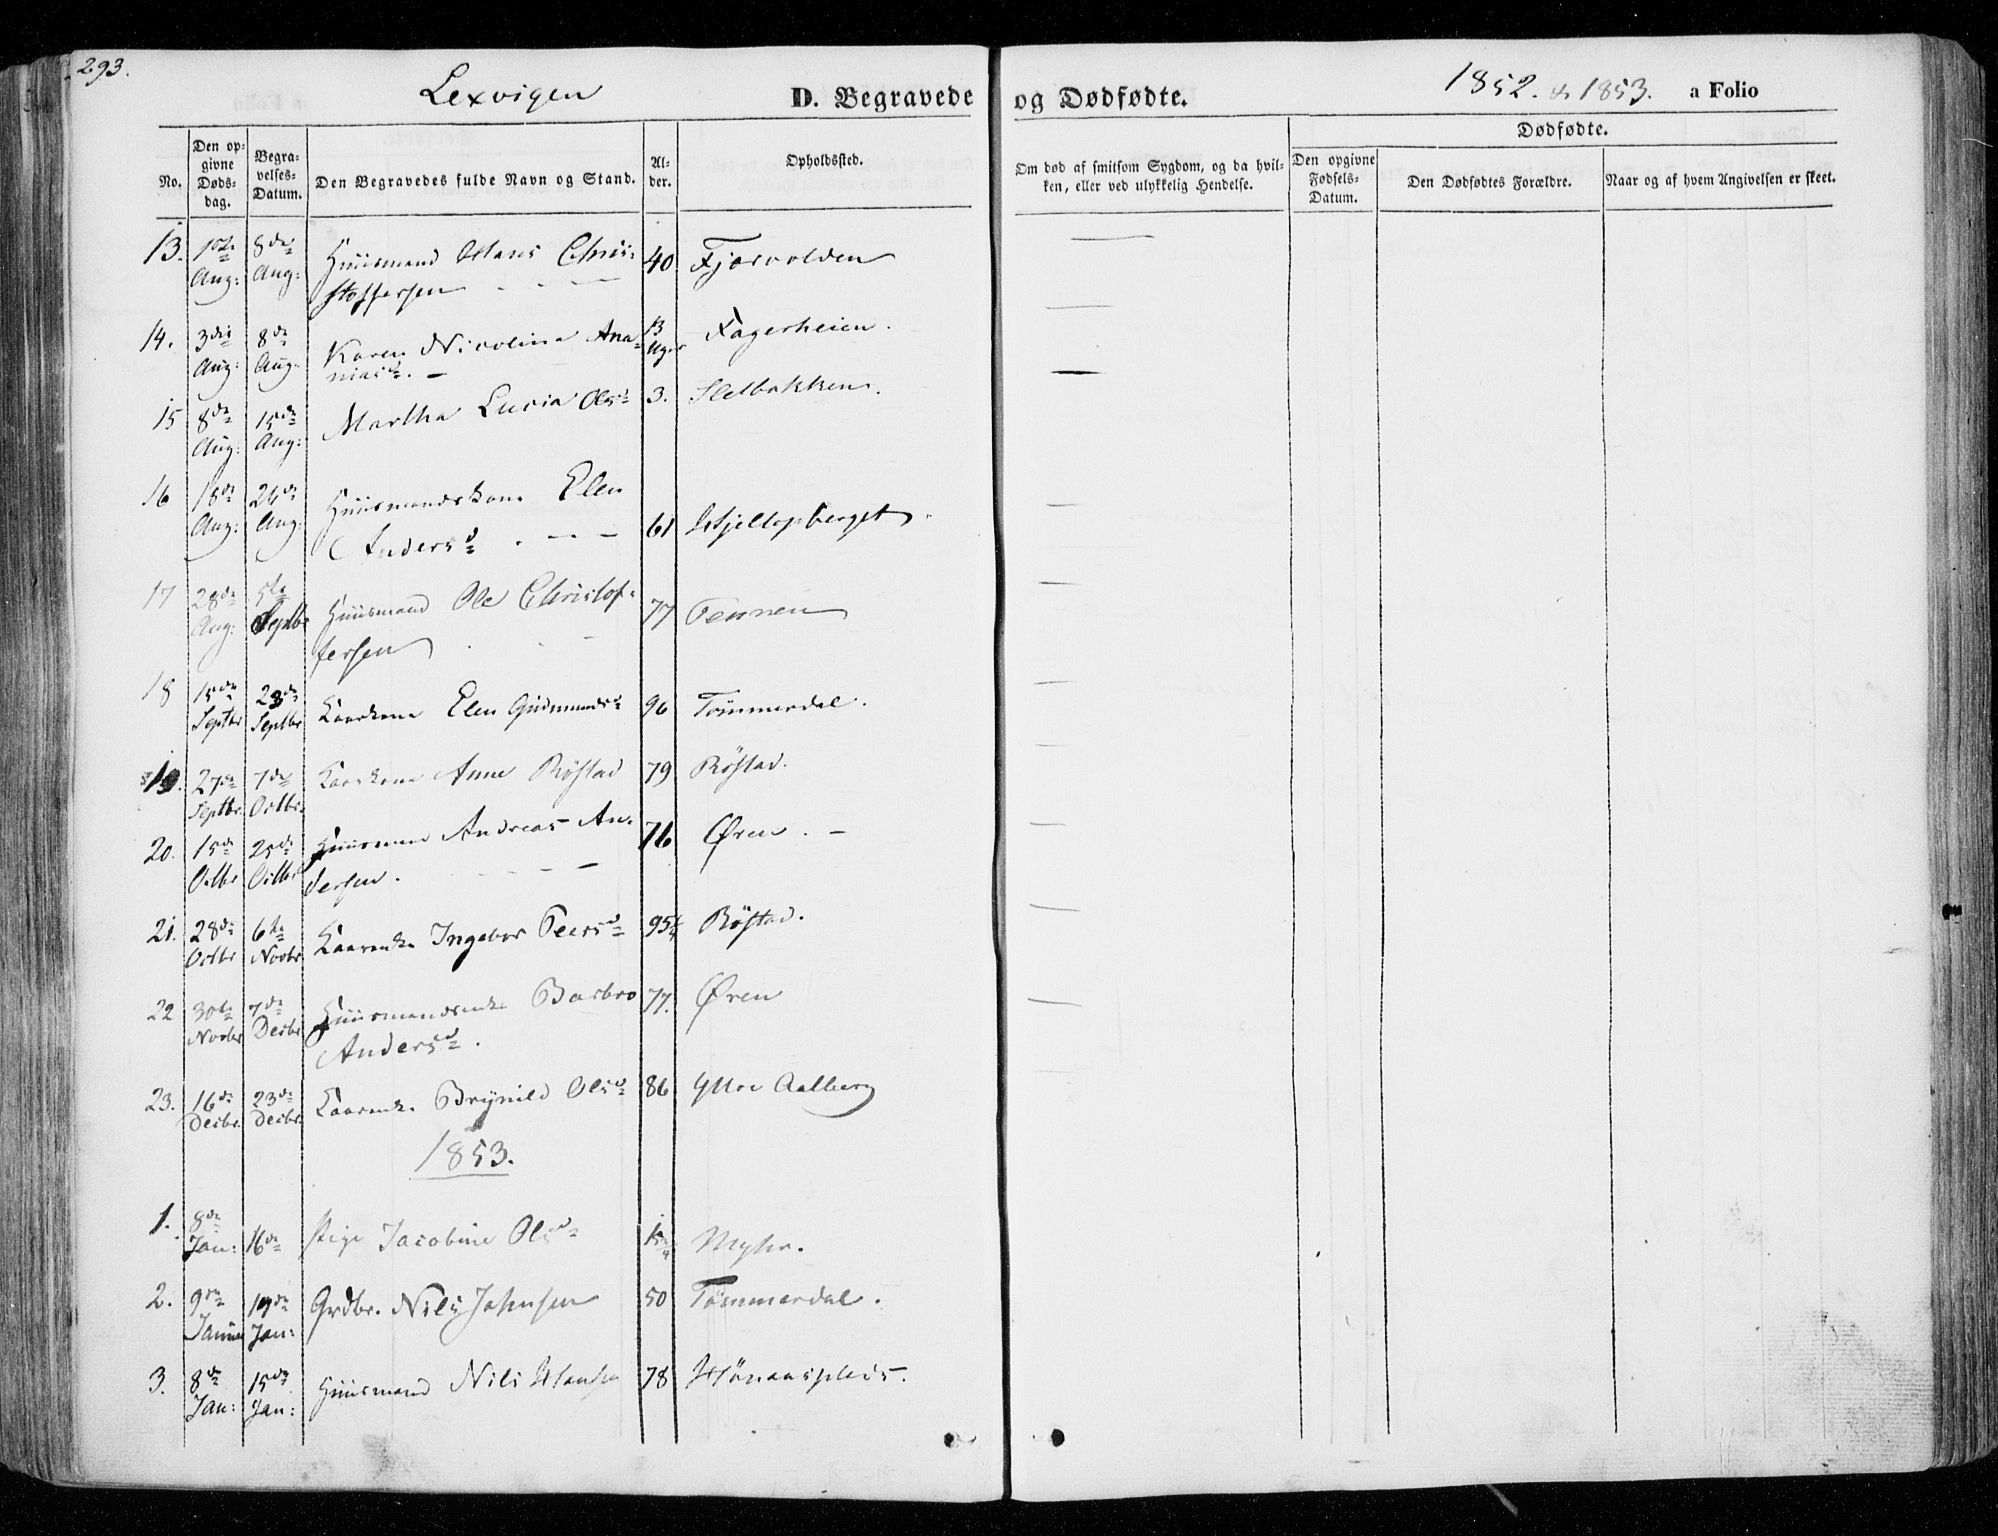 293.
Lexvigen
D. Begravede og Dødfødte.
1852. & 1853. a Folio
No.
Den opgivne Dødsdag.
Begravelses-Datum.
Den Begravedes fulde Navn og Stand.
Alder.
Opholdssted.
Om død af smitsom Sygdom, og da hvilken, eller ved ulykkelig Hendelse.
Dødfødte.
Den opgivne Fødsels-Datum.
Den Dødfødtes Forældre.
Naar og af hvem Angivelsen er skeet.
13. 1ste Aug: 8de Aug: Huusmand Hans Chri-
stoffersen 40 Fjørvolden
14. 3die Aug: 8de Aug: Karen Nicolina Ana-
niasd. 13 Uger Fagerheien.
15 8de Aug: 15de Aug: Martha Lucia Olsd 3. Sletbakken.
16 18de Aug: 26de Aug: Huusmandskone Elen
Andersd 61 Hjellopberget.
17 28de Aug: 5te Septbr Huusmand Ole Christof-
fersen 77 Tennen
18 15de Septbr 23de Septbr Kaarkone Elen Gudmundsd 96 Tömmerdal.
19. 27de Septbr. 7de Octbr. Kaarkone Anne Röstad 79 Röstad.
20. 15de Octbr 25de Octbr Huusmand Andreas An-
dersen. 76 Øren.
21. 28de Octbr 6te Novbr Kaarenke Ingebor Peersd 95 Röstad.
22 30te Novbr 7de Decbr Huusmandsenke Barbro
Andersd. 77. Øren
23. 16de Decbr. 23de Decbr. Kaarenke Brynild Olsd 86 Yttre Aalberg
1853.
1. 8de Jan: 16de Pige Jacobine Olsd Myhr.
2. 9de Januar 19de Jan: Grdbr. Nils Johnsen 50 Tömmerdal.
3. 8de Jan: 15de Jan: Huusmand Nils Hansen 78 Hönaasplads.